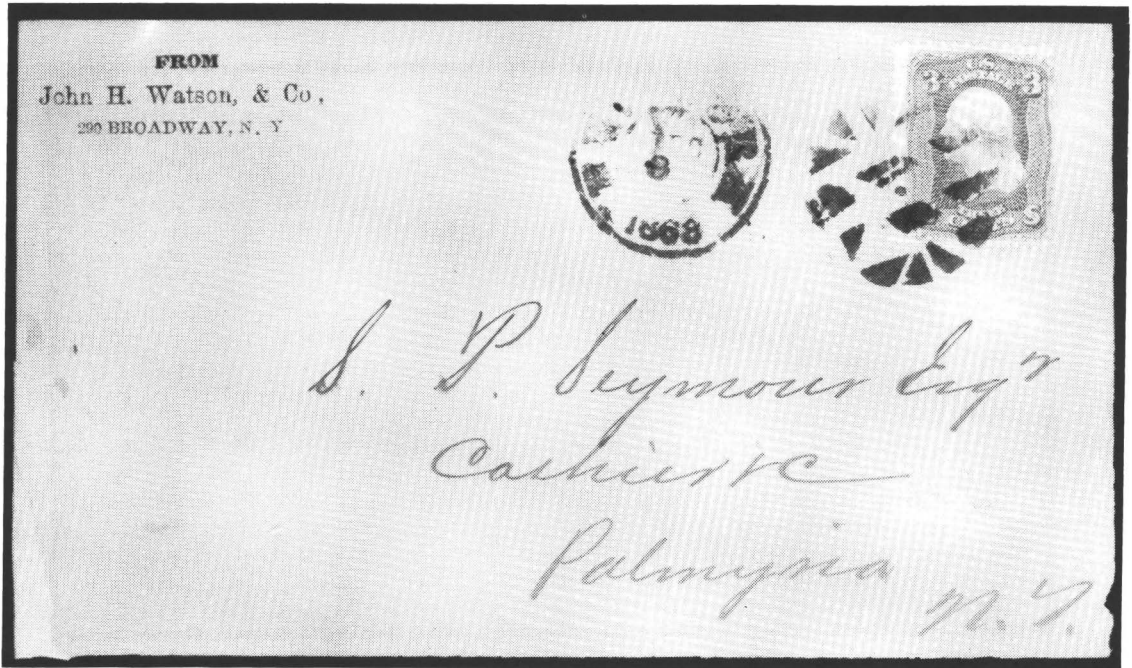 FROM
John H. Watson, & Co,
290 BROADWAY, N. Y
3 U S 3
1863
S. P. Seymour Esqr
Cashier &c
Palmyria
N. Y.